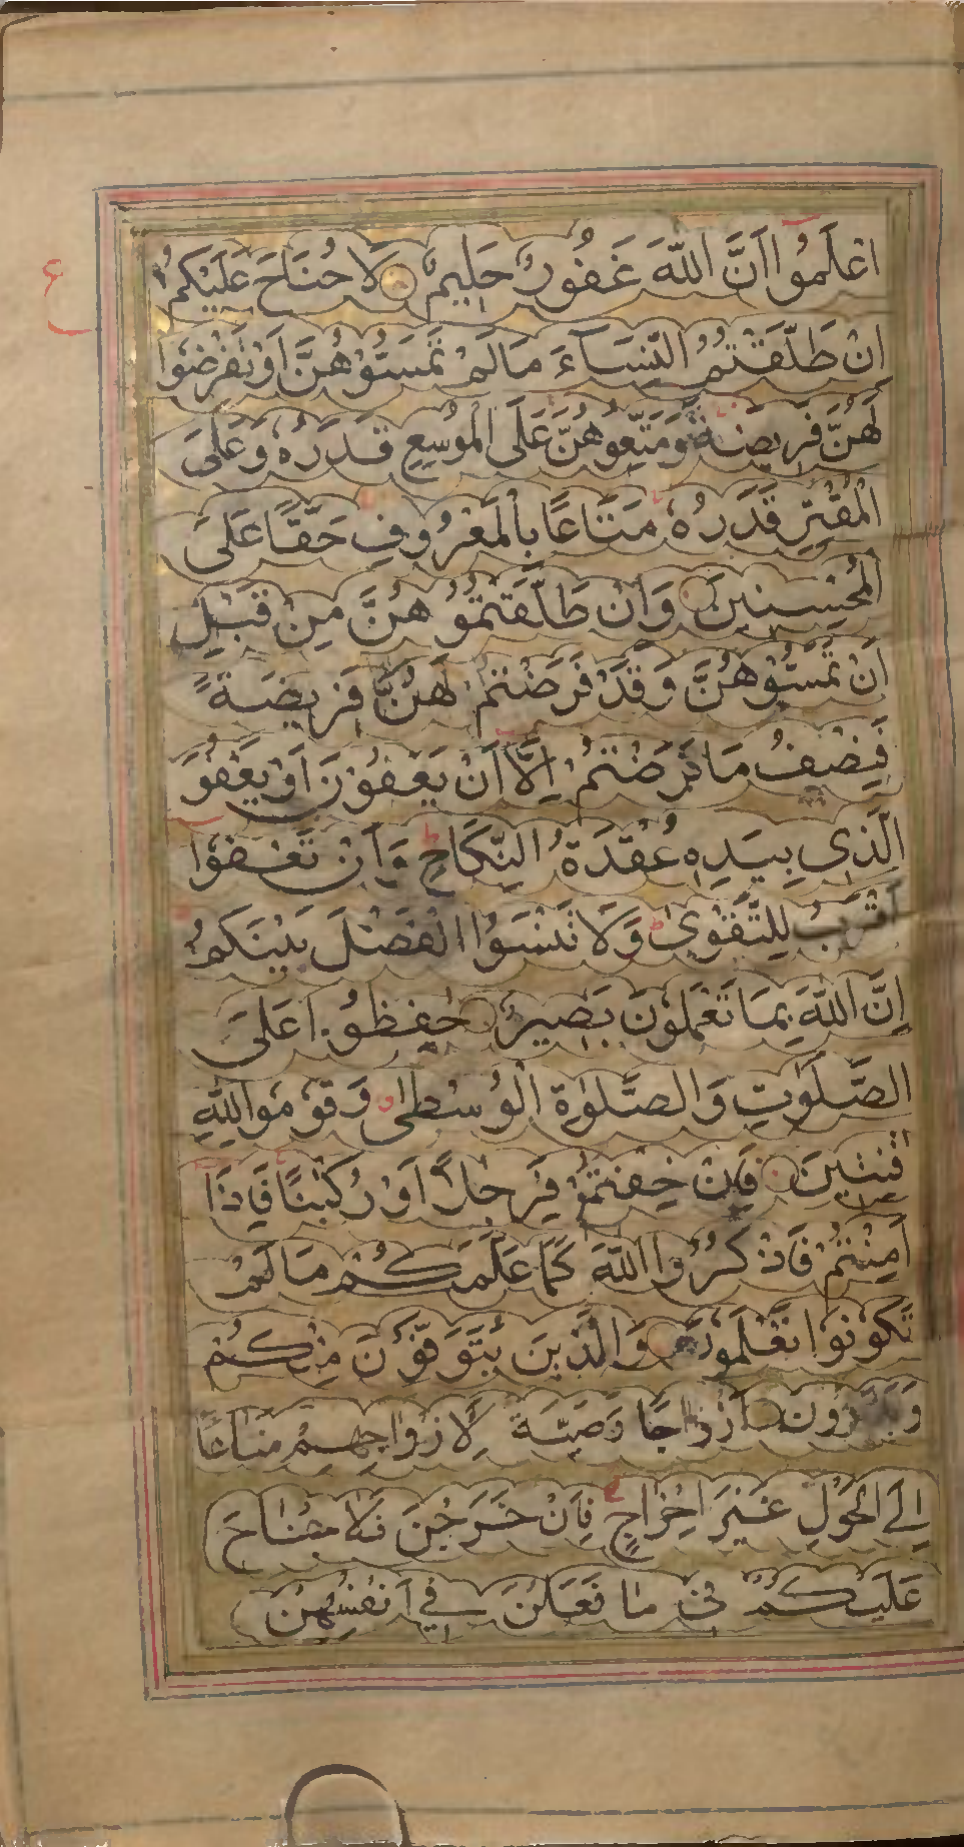 اعْلَمُوا اَنَّ اللّٰهَ غَفُورٌ حَلِيمٌ لَا جُنَاحَ عَلَيْكُمْ
ع
اِنْ طَلَّقْتُمُ النِّسَآءَ مَالَمْ تَمَسُّوْهُنَّ اَوْ تَفْرِضُوْا
لَهُنَّ فَرِيضَةً وَمَتِّعُوهُنَّ عَلَى الْمُوسِعِ قَدَرُهٗ وَعَلَى
الْمُقْتِرِ قَدَرُهٗ مَتَاعًا بِالْمَعْرُوفِ حَقًّا عَلَى
الْمُحْسِنِينَ وَاِنْ طَلَّقْتُمُوْهُنَّ مِنْ قَبْلِ
اَنْ تَمَسُّوْهُنَّ وَقَدْ فَرَضْتُمْ لَهُنَّ فَرِيضَةً
فَنِصْفُ مَا فَرَضْتُمْ اِلَّا اَنْ يَعْفُوْنَ اَوْ يَعْفُوَ
الَّذِي بِيَدِهٖ عُقْدَةُ النِّكَاحِ وَاَنْ تَعْفُوْا
اَقْرَبُ لِلتَّقْوٰى وَلَا تَنْسَوُا الْفَضْلَ بَيْنَكُمْ
اِنَّ اللّٰهَ بِمَا تَعْمَلُوْنَ بَصِيرٌ حٰفِظُوْا عَلَى
الصَّلَوٰتِ وَالصَّلٰوةِ الْوُسْطٰى وَقُوْمُوا لِلّٰهِ
قٰنِتِينَ فَاِنْ خِفْتُمْ فَرِجَالًا اَوْ رُكْبَانًا فَاِذَا
اَمِنْتُمْ فَاذْكُرُوا اللّٰهَ كَمَا عَلَّمَكُمْ مَا لَمْ
تَكُوْنُوْا تَعْلَمُونَ وَالَّذِينَ يُتَوَفَّوْنَ مِنْكُمْ
وَيَذَرُونَ اَزْوَاجًا وَصِيَّةً لِاَزْوَاجِهِمْ مَتَاعًا
اِلَى الْحَوْلِ غَيْرَ اِخْرَاجٍ فَاِنْ خَرَجْنَ فَلَا جُنَاحَ
عَلَيْكُمْ فِى مَا فَعَلْنَ فِي اَنْفُسِهِنَّ